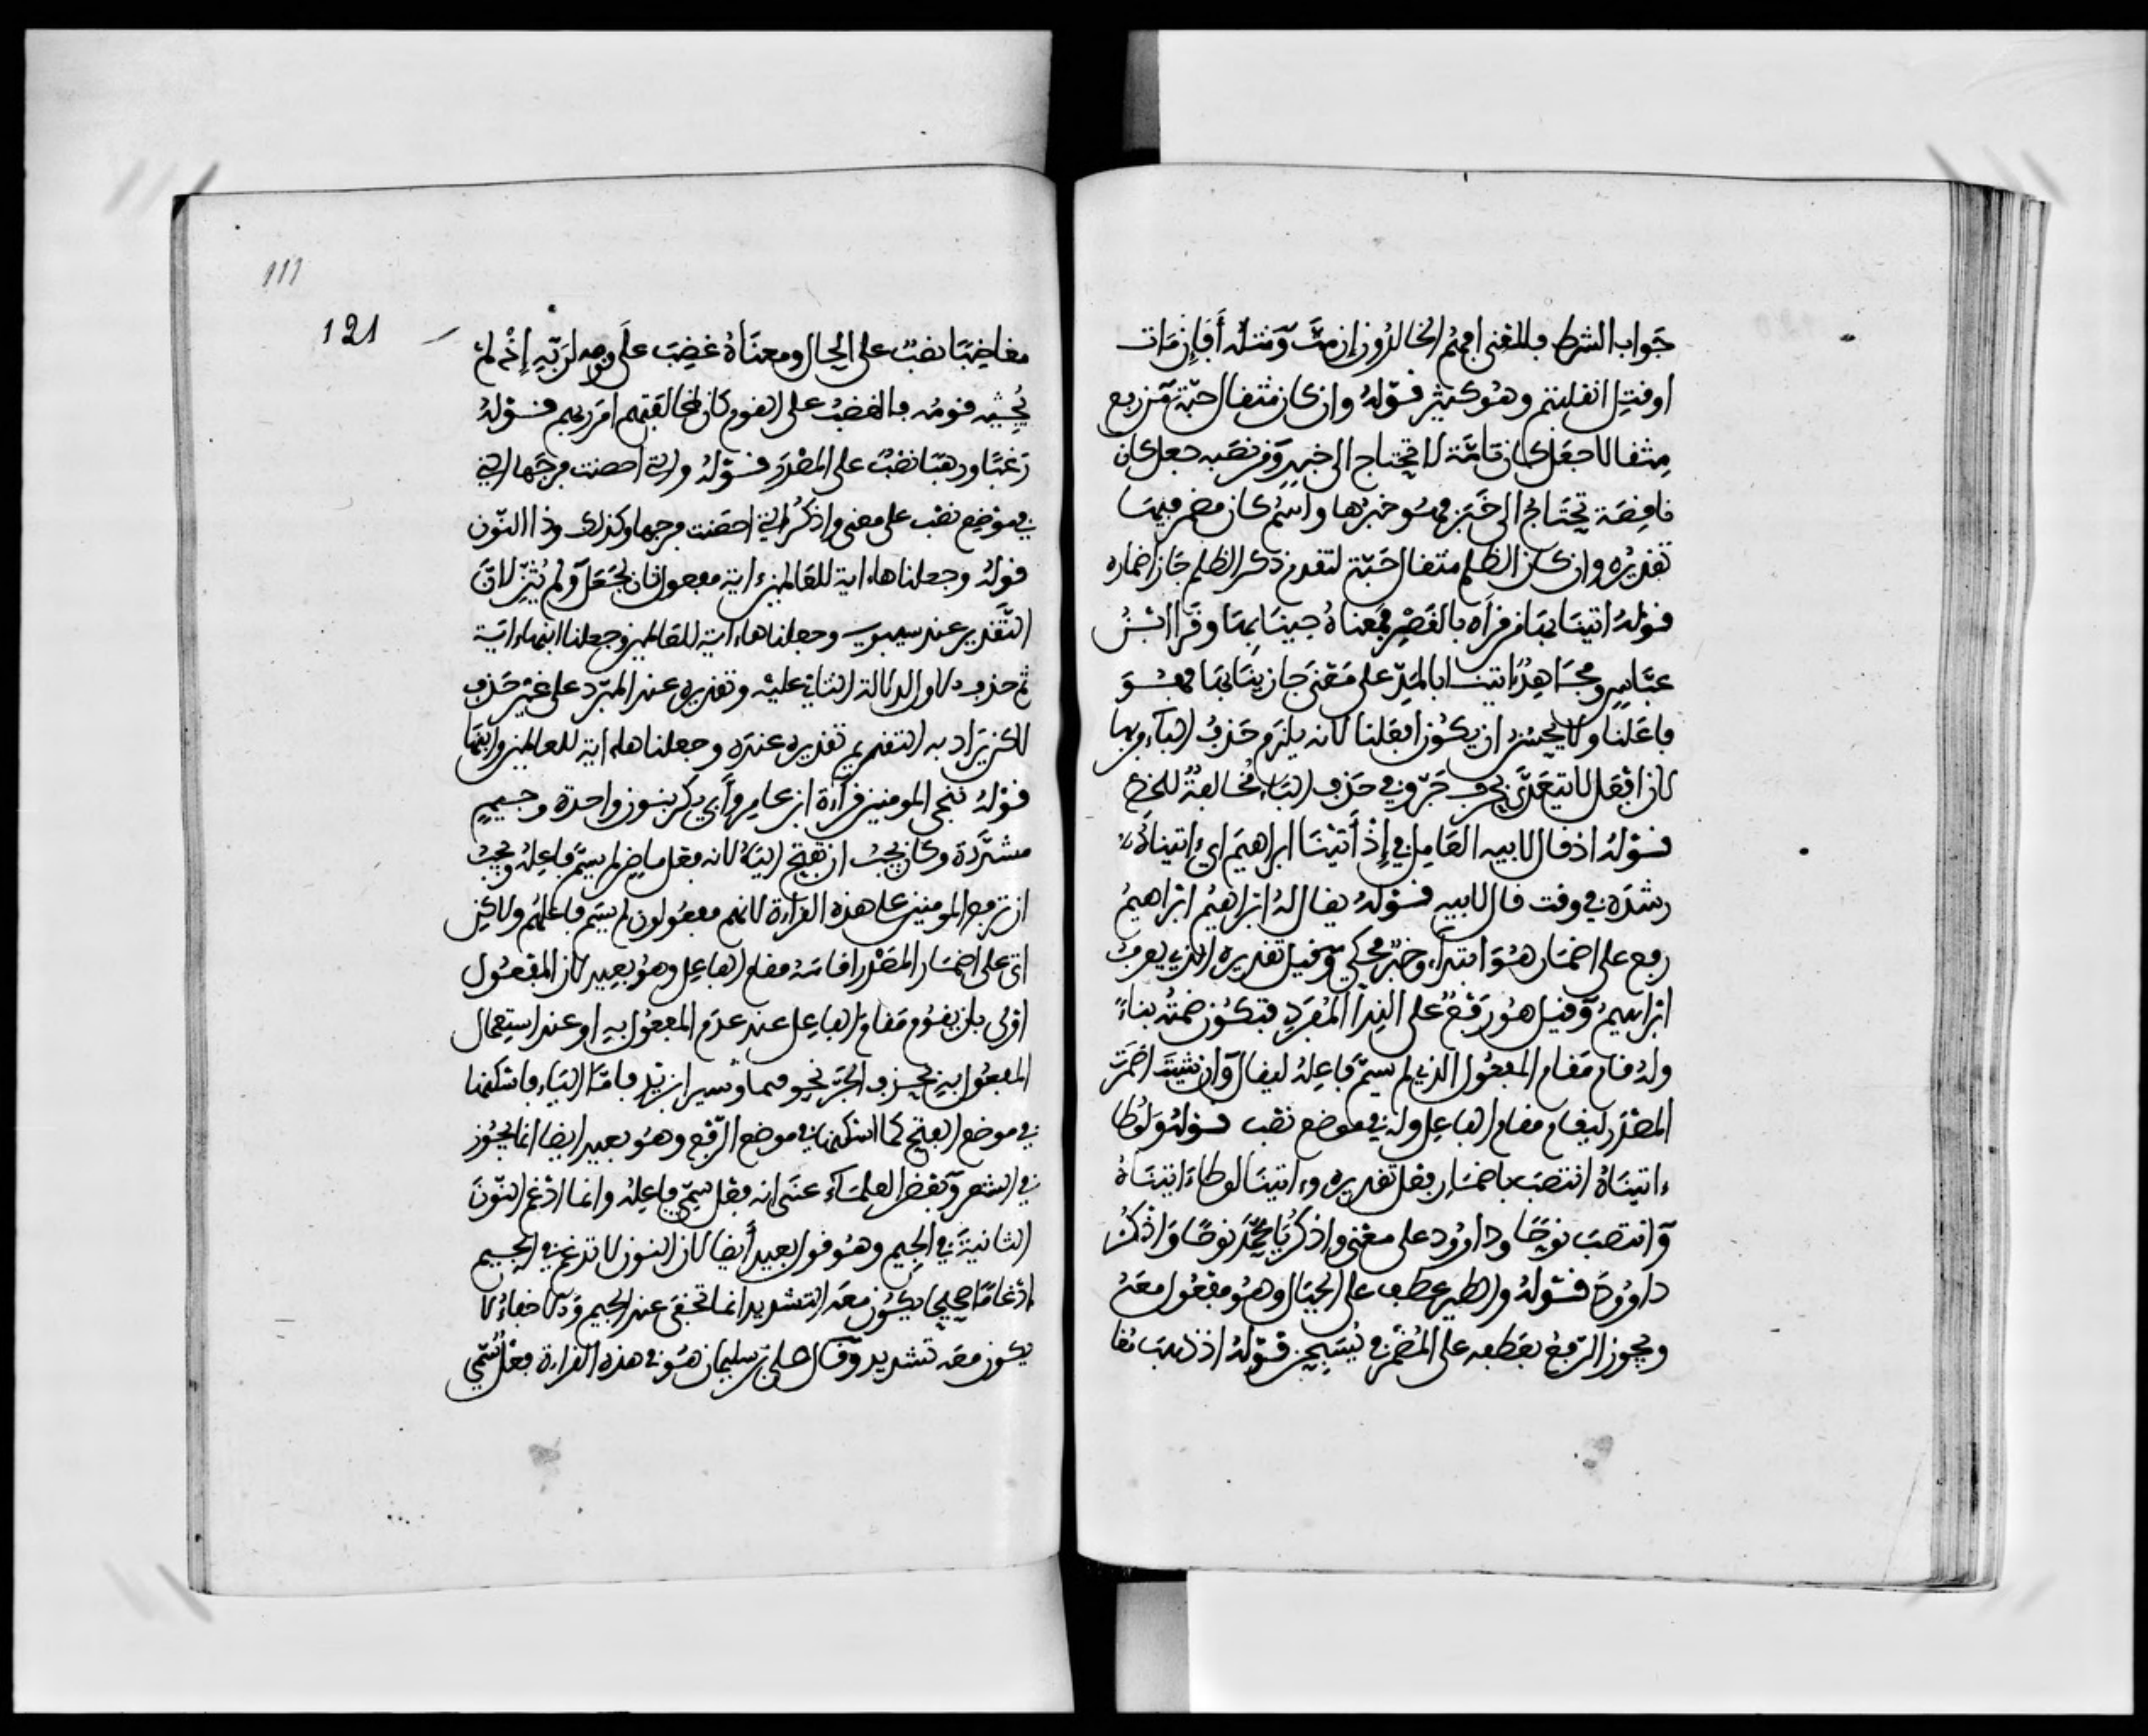 جواب الشرط فالمعنى افهم الخالدون إن متَّ ومثله أفإن مات
اوقتل انقلبتم وهو كثير قوله وان كان مثقال حبة من رفع
مثقالا جعل كان تامّة لا تحتاج الى خبر ومن نصبه جعل كان
ناقصة تحتاج الى خبر فهو خبرها واسم كان مضمر فيها
تقديره وان كان الظلم مثقال حبّة لتقدم ذكر الظلم جاز اضماره
قوله اتينا بها من قراه بالقصر فمعناه جينا بها وقرا ابن
عبّاس ومجاهد اتينا بالمدّ على معنى جازينا بها فهو
فاعلنا ولا يحسن ان يكون افعلنا لانه يلزم حذف الباء من بها
لان افعل لا يتعدّى بحرف جرّ وفي حذف الباء مخالفة للخط
قوله اذ قال لابيه العامل في إذ أتينا ابراهيم اي ءاتيناه
رشده في وقت قال لابيه قوله يقال له ابراهيم ابراهيم
رفع على اضمار هو ابتداء وخبر محكي وقيل تقديره الذي يعرف
ابراهيم وقيل هو رفع على النداء المفرد فتكون ضمته بناءً
وله قام مقام المفعول الذي لم يسمّ فاعله ليقال وان شيت اضمرت
المصدر ليقام مقام الفاعل وله في موضع نصب قوله ولوطا
ءاتيناه انتصب باضمار فعل تقديره وءاتينا لوطا ءاتيناه
وانتصب نوحًا وداوود على معنى واذكر يا محمّد نوحًا واذكر
داوود قوله والطير عطف على الجبال وهو مفعول معه
ويجوز الرّفع بعطفه على المضمر في يُسَبِّحن قوله اذ ذهب مُغا
111
121
مغاضبًا نصبٌ على الحال ومعناه غضِبَ على قومه لربّه إذ لم
يُجِبْه قومُه فالغضب على القوم كان لمخالفتهم امر ربهم قوله
رغبًا ورهبًا نصبٌ على المصدر قوله والتي احصنت فرجها التي
في موضع نصب على معنى واذكر التي احصنت فرجها وكذلك وذا النّون
قوله وجعلناها ءاية للعالمين ءاية مفعول ثان لجعل ولم يُثنِّ لانّ
التّقدير عند سيبويه وجعلناها ءاية للعالمين وجعلنا ابنها ءاية
ثم حذف الاول لدلالة الثاني عليه وتقديره عند المبرّد على غير حذف
لاكن يراد به التقديم تقديره عنده وجعلناها ءاية للعالمين وابنها
قوله نُجي المومنين قراءة ابن عامر وأبي بكر بنون واحدة وجيم
مشدّدة وكان يجب ان تفتح الياء لانه فعل ماض لم يسمّ فاعله ويجب
ان ترفع المومنين على هذه القراءة لانهم مفعولون لم يسم فاعلهم ولاكن
اتى على اضمار المصدر اقامه مقام الفاعل وهو بعيد لان المفعول
اولى بان يقوم مقام الفاعل عند عدم المفعول به او عند استعمال
المفعول به بحرف الجرّ نحو سير بزيد فامّا الياء فاسكنها
في موضع الفتح كما اسكنها في موضع الرّفع وهو بعيد ايضا انما يجوز
في الشعر وبعض العلماء عنى انه فعل سُمّي فاعله وانما ادغم النّون
الثانية في الجيم وهو قول بعيد أيضا لان النون لا تدغم في الجيم
ادغامًا صحيحا يكون معه التشديد انما تخفى عند الجيم والاخفاء لا
يكون معه تشديد وقال علي بن سليمان هو في هذه القراءة فعل سُمّي